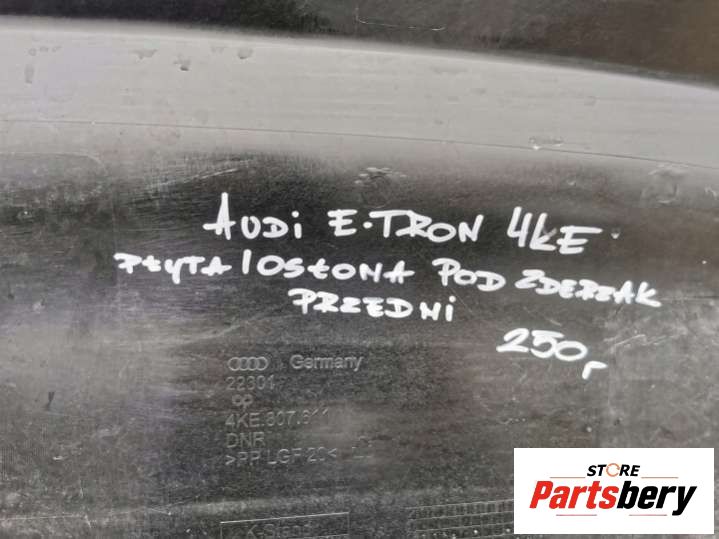 AUDI E-TRON 4KE
PŁYTA/OSŁONA POD ZDERZAK
PRZEDNI
250,-
Germany
22301
4KE.807.611
DNR
>PP LGF 20<
STORE
Partsbery